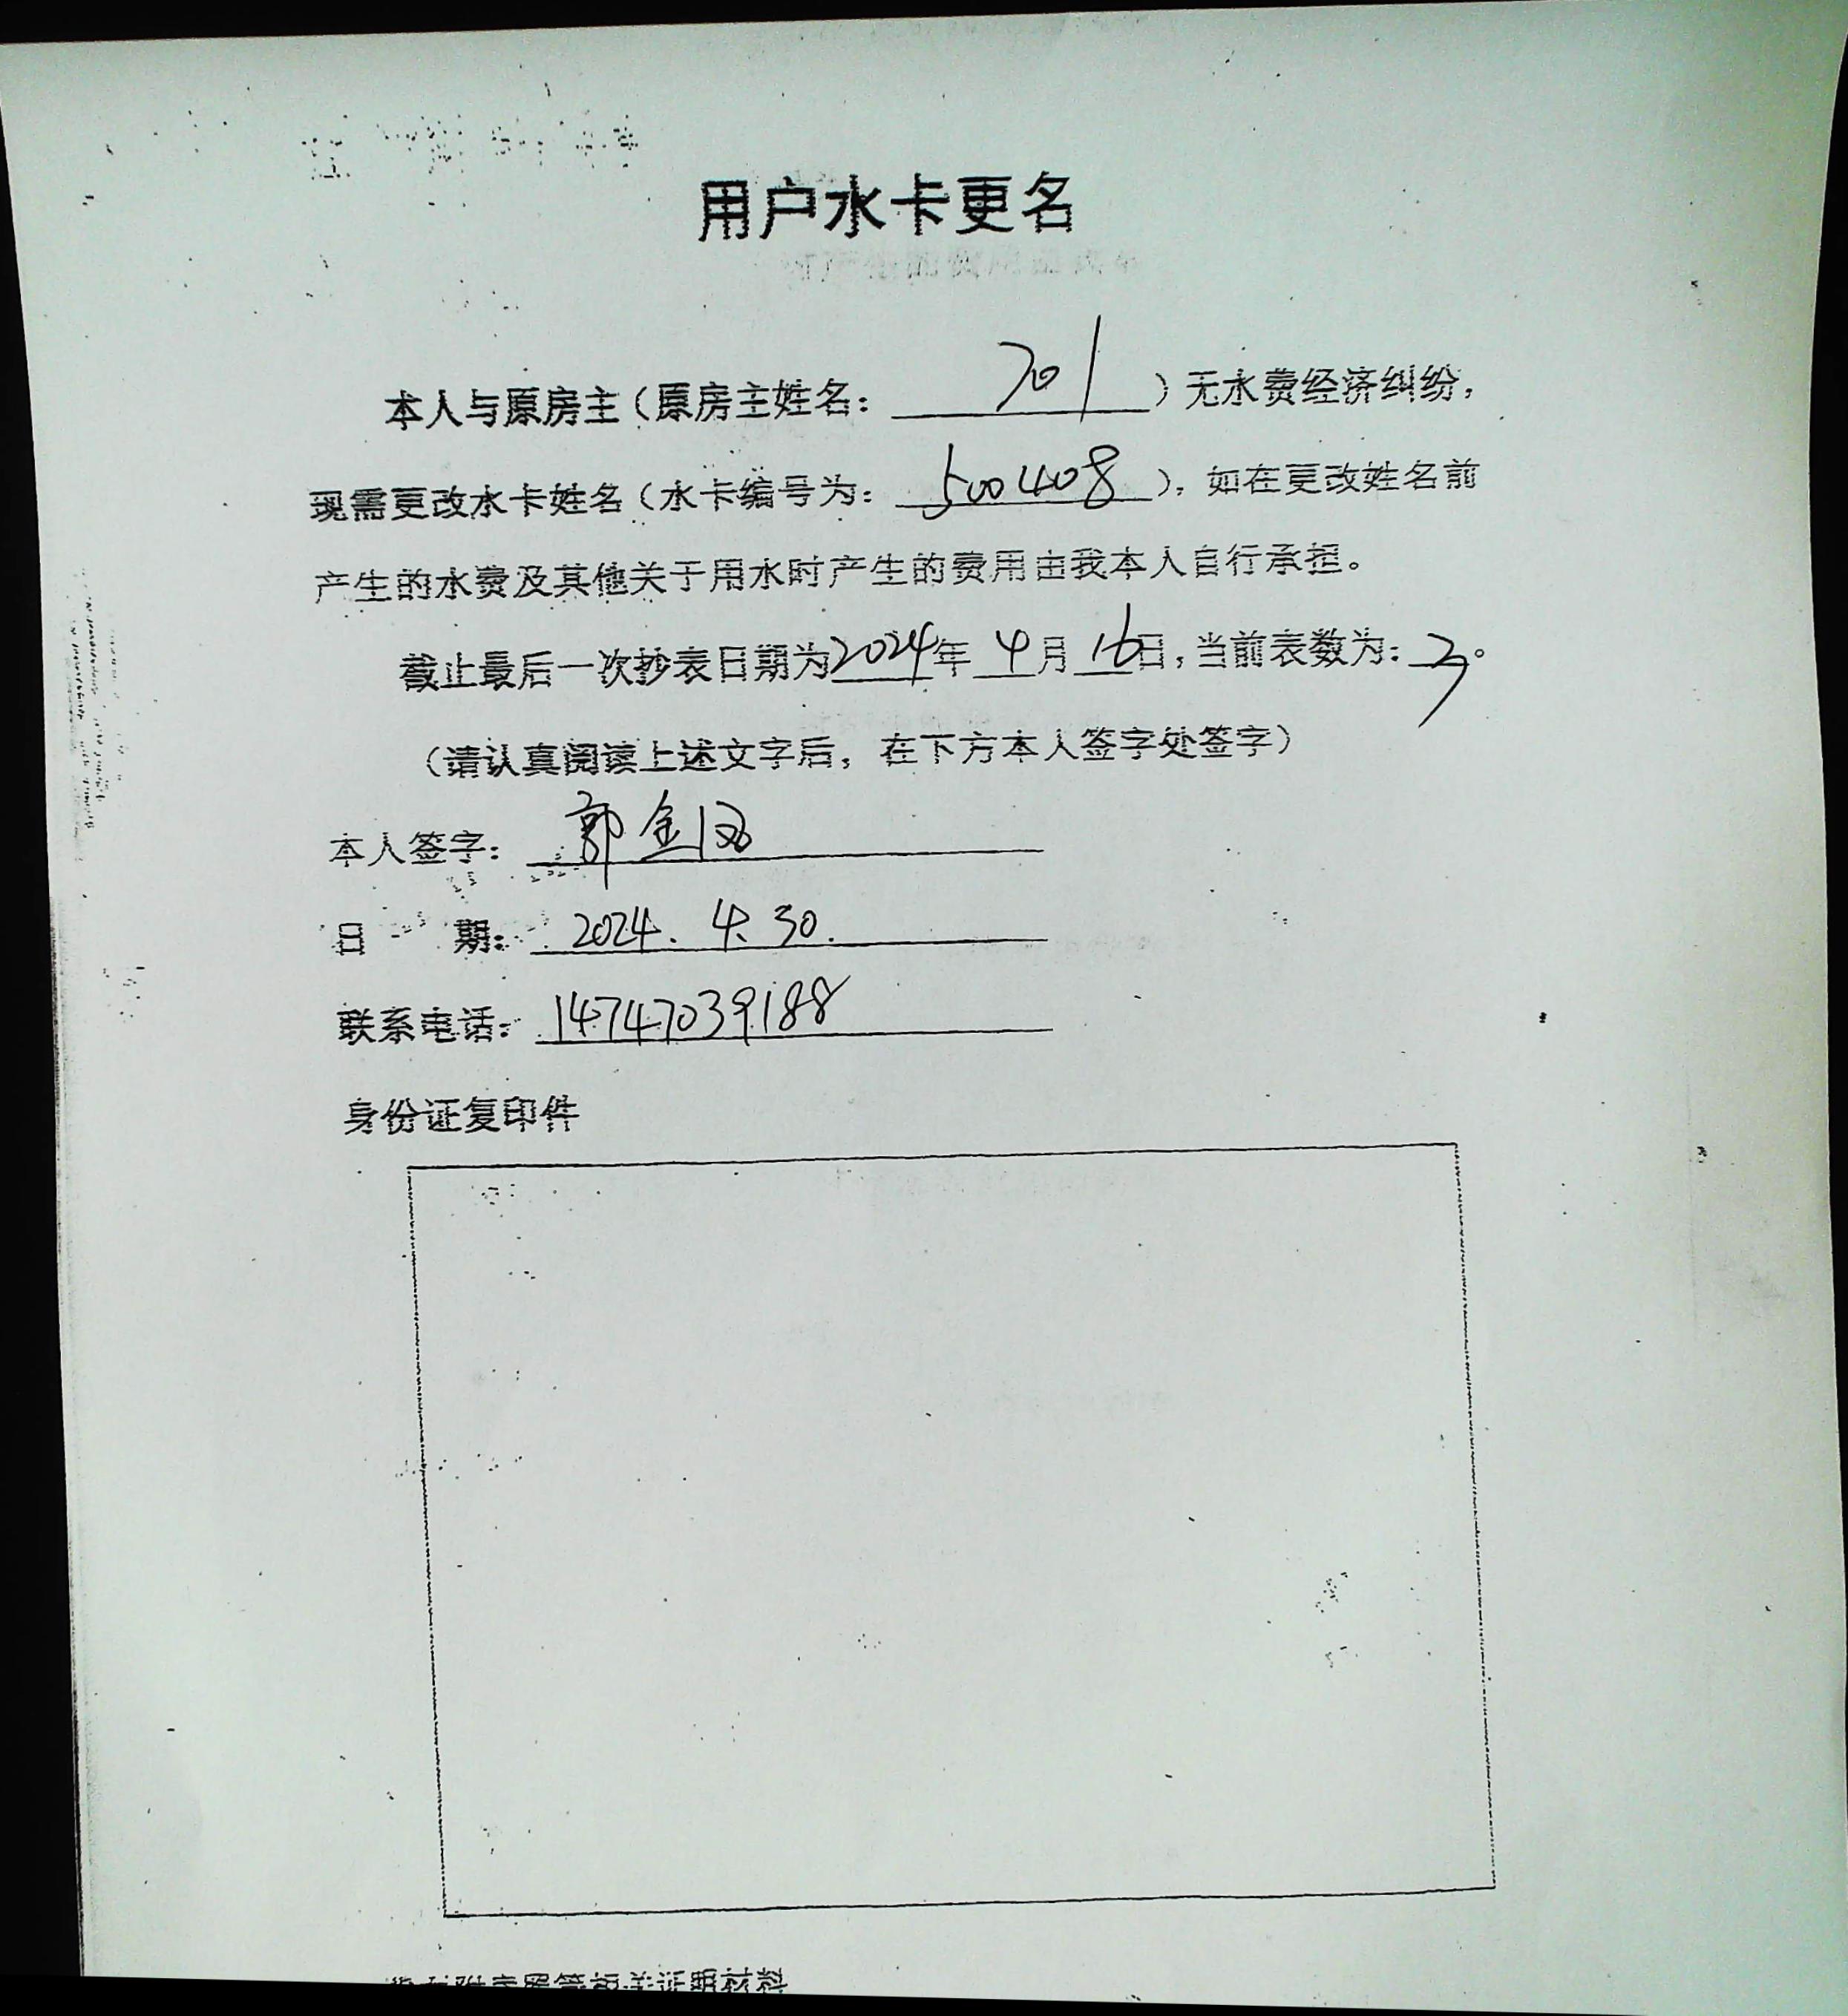 用户水卡更名
本人与原房主（原房主姓名：701）无水费经济纠纷，
现需更改水卡姓名（水卡编号为：500408），如在更改姓名前
产生的水费及其他关于用水时产生的费用由我本人自行承担。
截止最后一次抄表日期为2024年4月16日，当前表数为：。
（请认真阅读上述文字后，在下方本人签字处签字）
本人签字：郭金凤
日 期：2024.4.30.
联系电话：14747039188
身份证复印件
附房照等相关证明材料